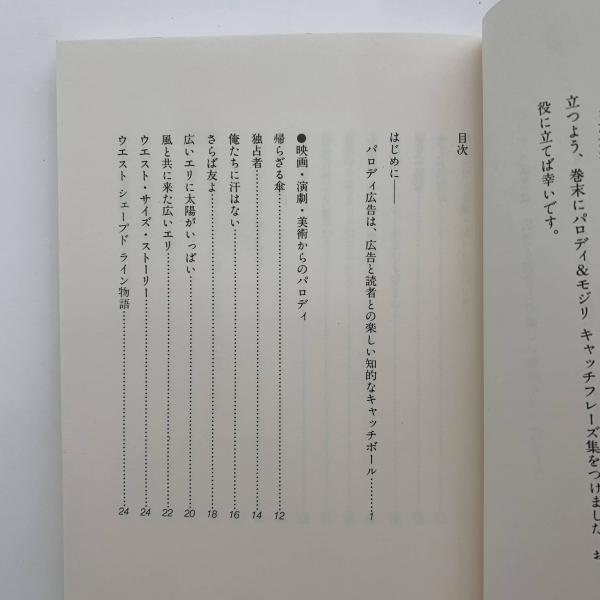 立つよう、巻末にパロディ&モジリ キャッチフレーズ集をつけました。お
役に立てば幸いです。
目次
はじめに――
パロディ広告は、広告と読者との楽しい知的なキャッチボール……1
●映画・演劇・美術からのパロディ
帰らざる傘……12
独占者……14
俺たちに汗はない……16
さらば友よ……18
広いエリに太陽がいっぱい……20
風と共に来た広いエリ……22
ウエスト・サイズ・ストーリー……24
ウエスト シェープド ライン物語……24